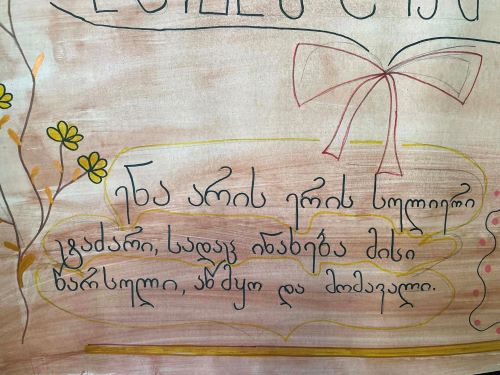 ენა არის ერის სულიერი
ტაძარი, სადაც ინახება მისი
წარსული, აწმყო და მომავალი.